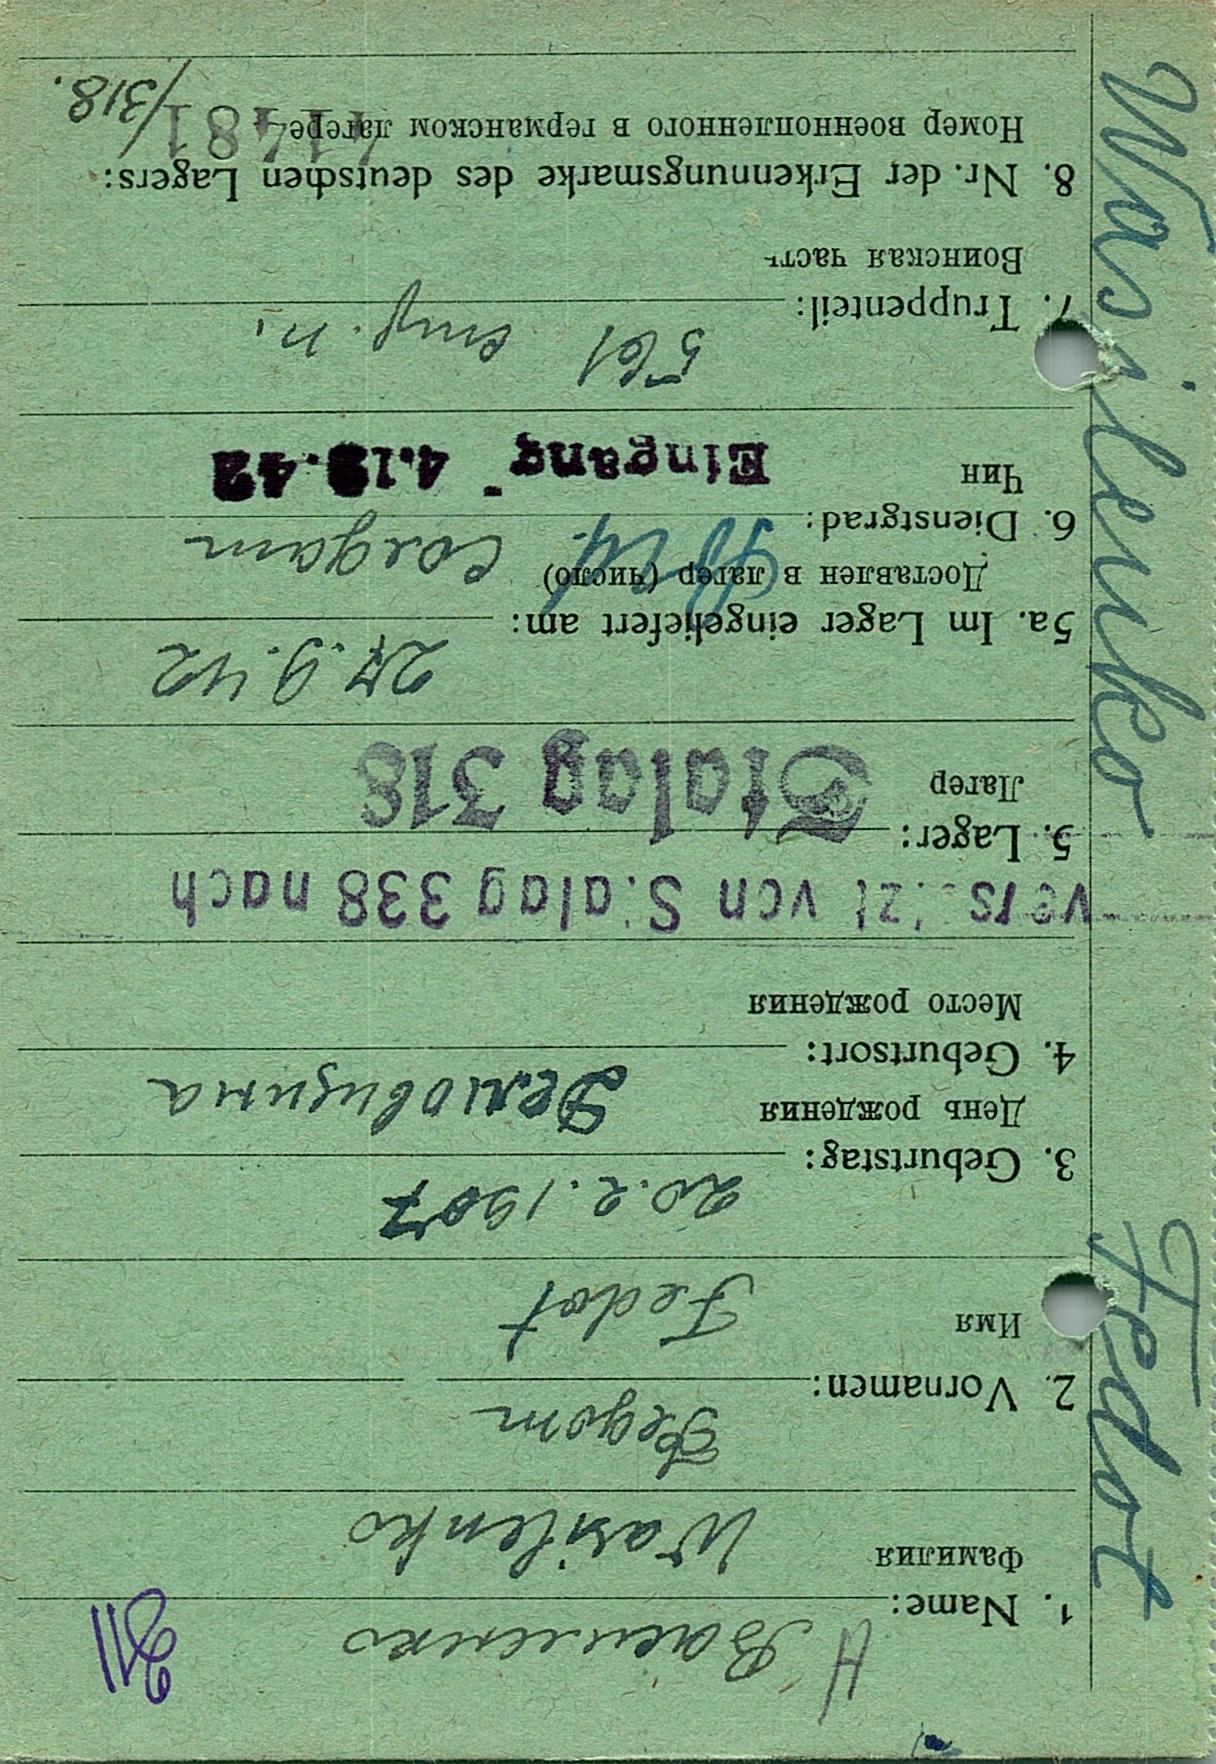 311
H Василенко
1. Name:
Фамилия
Wasilenko
Федот
2. Vornamen:
Имя
Fedot
20.2.1907
3. Geburtstag:
День рождения
4. Geburtsort:
Место рождения
Stalag 338 nach
5. Lager: Stalag 318
Лагерь
27.9.42
5a. Im Lager eingeliefert am:
Доставлен в лагерь (число)
солдат
6. Dienstgrad:
Чин
Eingang 4.12.42
561 стр. п.
7. Truppenteil:
Воинская часть
8. Nr. der Erkennungsmarke des deutschen Lagers:
Номер военнопленного в германском лагере
/318.
Wasilenko Fedot